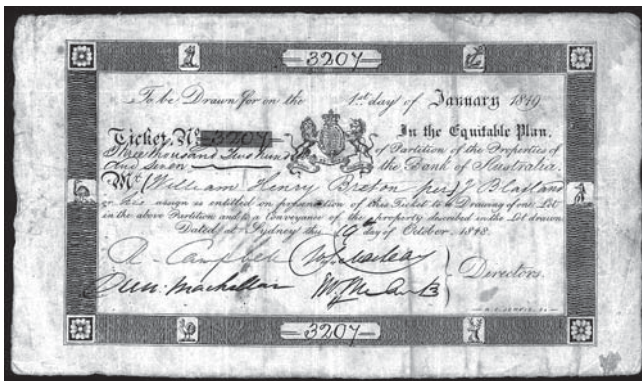 3207
To be Drawn for on the 1st day of January 1849
Ticket. No 3207 In the Equitable Plan.
Three thousand Two hundred of Partition of the Properties of
and Seven the Bank of Australia.
Mr. (William Henry Breton per) J Blaxland
or his assign is entitled on presentation of this Ticket to a Drawing of one Lot
in the above Partition and to a Conveyance of the property described in the Lot drawn
Dated at Sydney this 19th day of October. 1848.
R. Campbell
Directors.
3207